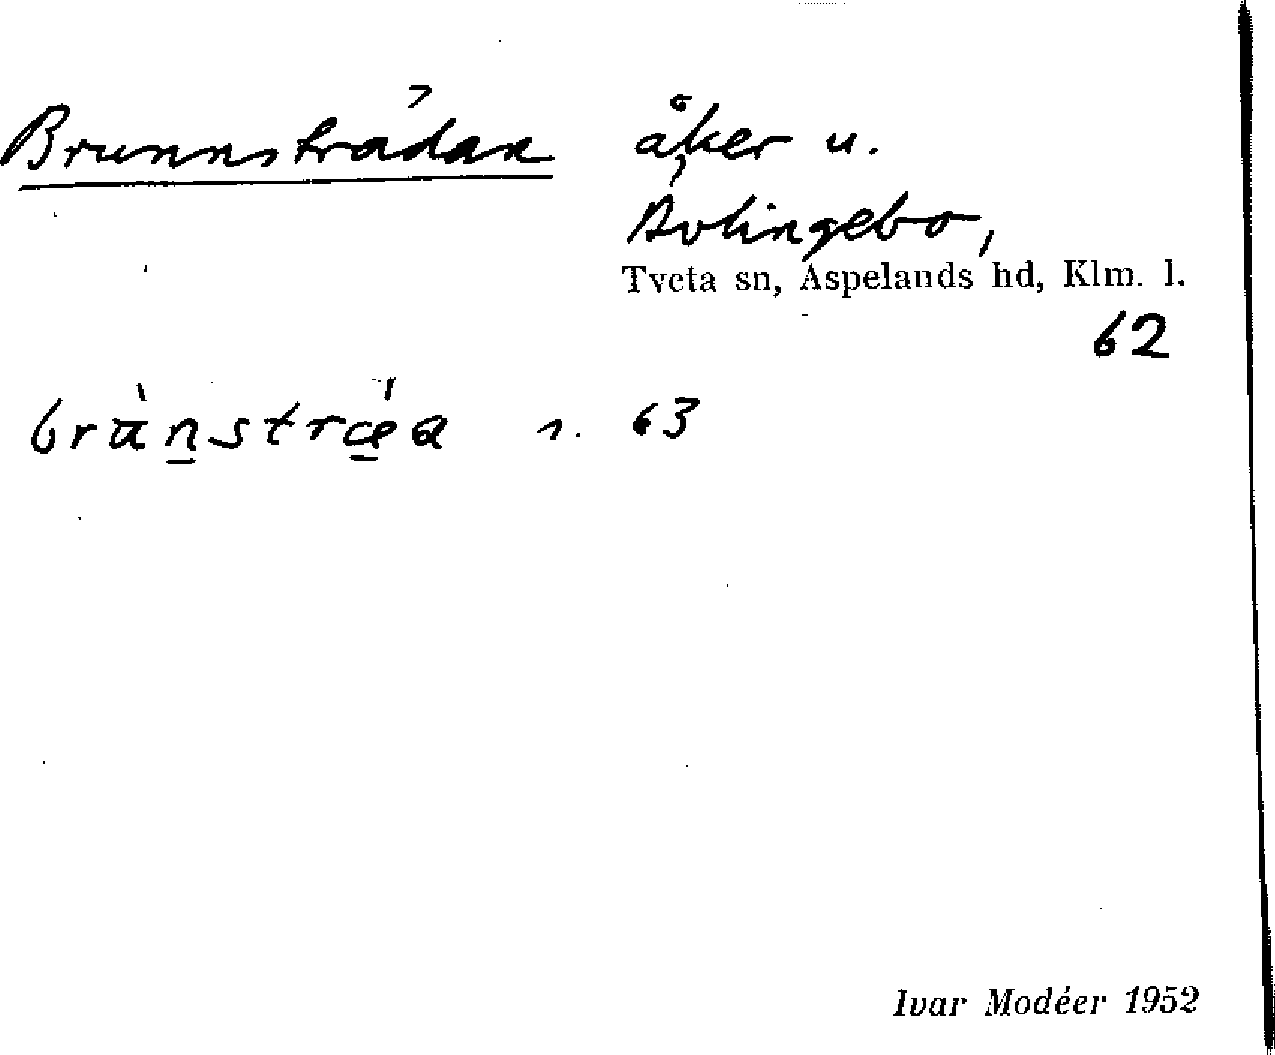 Brunnsträdan åker u.
Åvlingebo,
Tveta sn, Aspelands hd, Klm. l.
62
63
Ivar Modéer 1952